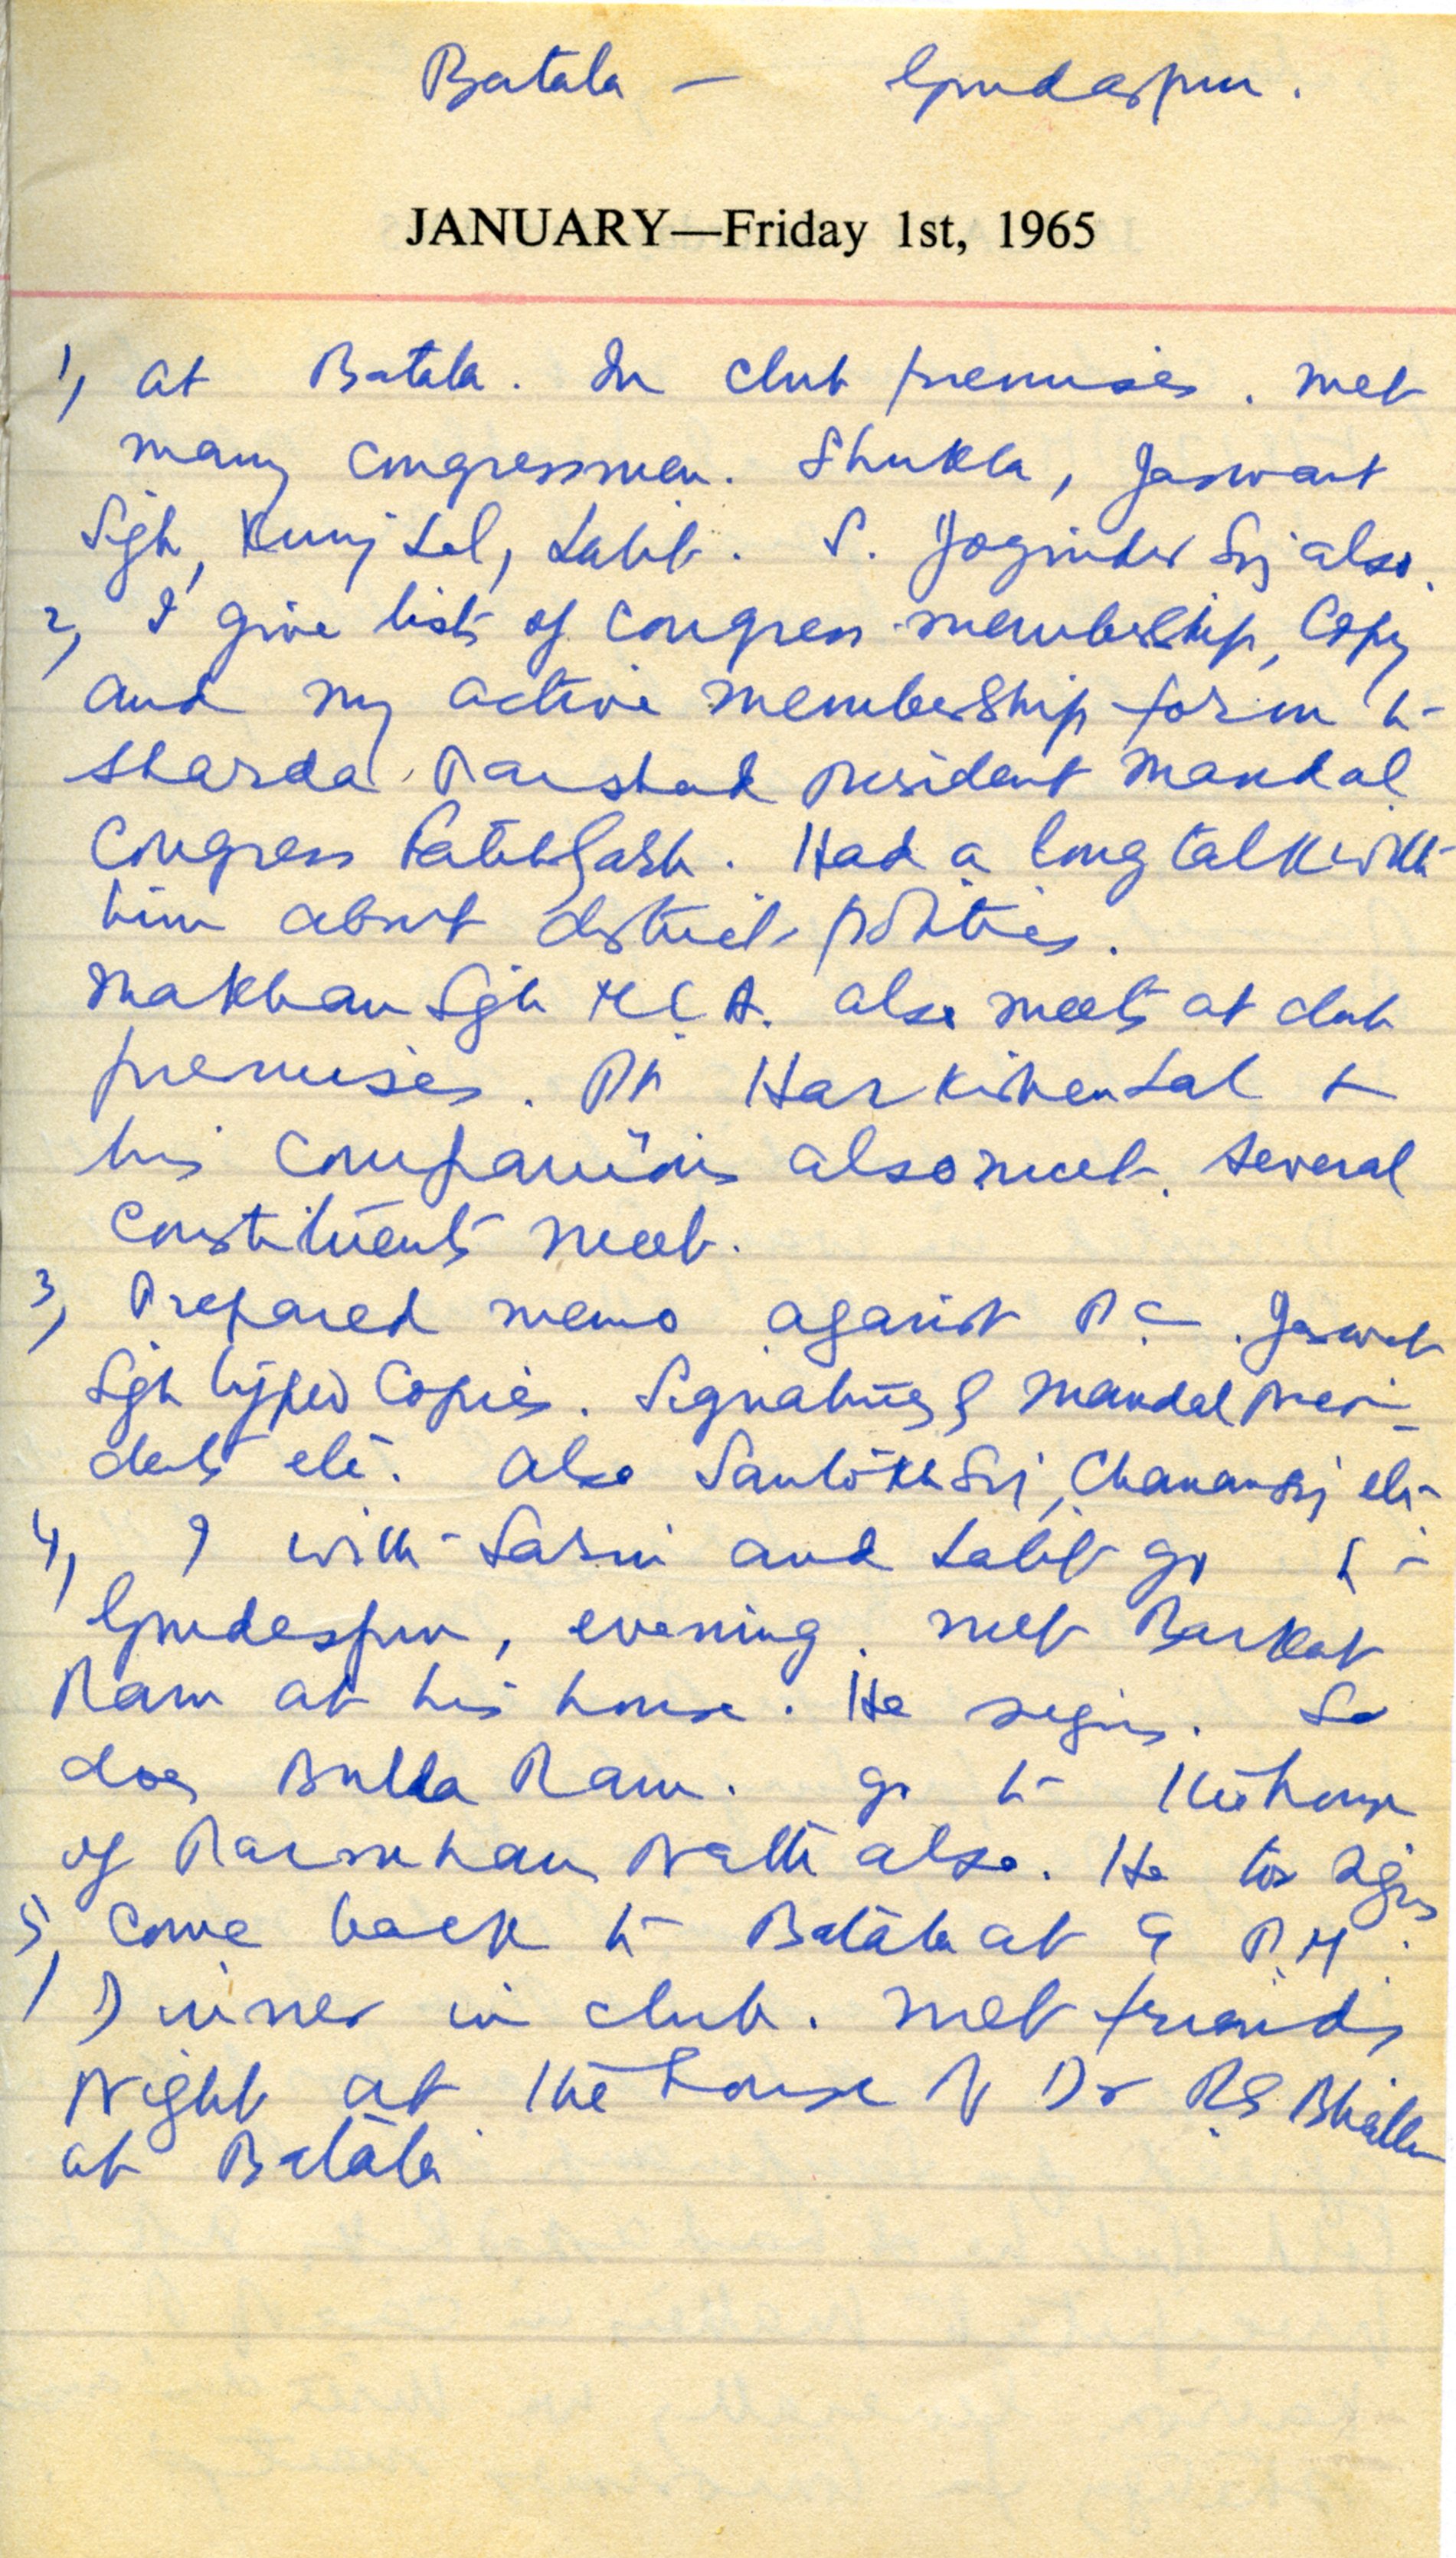 Batala — Gurdaspur.
JANUARY—Friday 1st, 1965
1, at Batala. In club premises. met
many congressmen. Shukla, Jaswant
Sgh, Kunj Lal, Labh. S. Joginder Sij also.
2, I give lists of Congress membership, Copy
and my active membership form to
Sharda Parshad President Mandal
Congress FatehGarh. Had a long talk with
him about district politics.
Makhan Sgh M.L.A. also meets at club
premises. Pt Harkishen Lal &
his companions also meet. Several
constituents meet.
3, Prepared memo against P.C. Jaswant
Sgh typed copies. Signatures of Mandal Presi-
dents etc. also Santokh Sij, Chanan Sij etc
4, I with Sarin and Labh go to
Gurdaspur, evening. meet Barkat
Ram at his house. He signs. So
does Bulla Ram. go to the house
of Nath also. He too signs
5, Come back to Batala at 9 P.M.
Dinner in club. met friends
Night at the house of Dr R.S Bhalla
at Batala